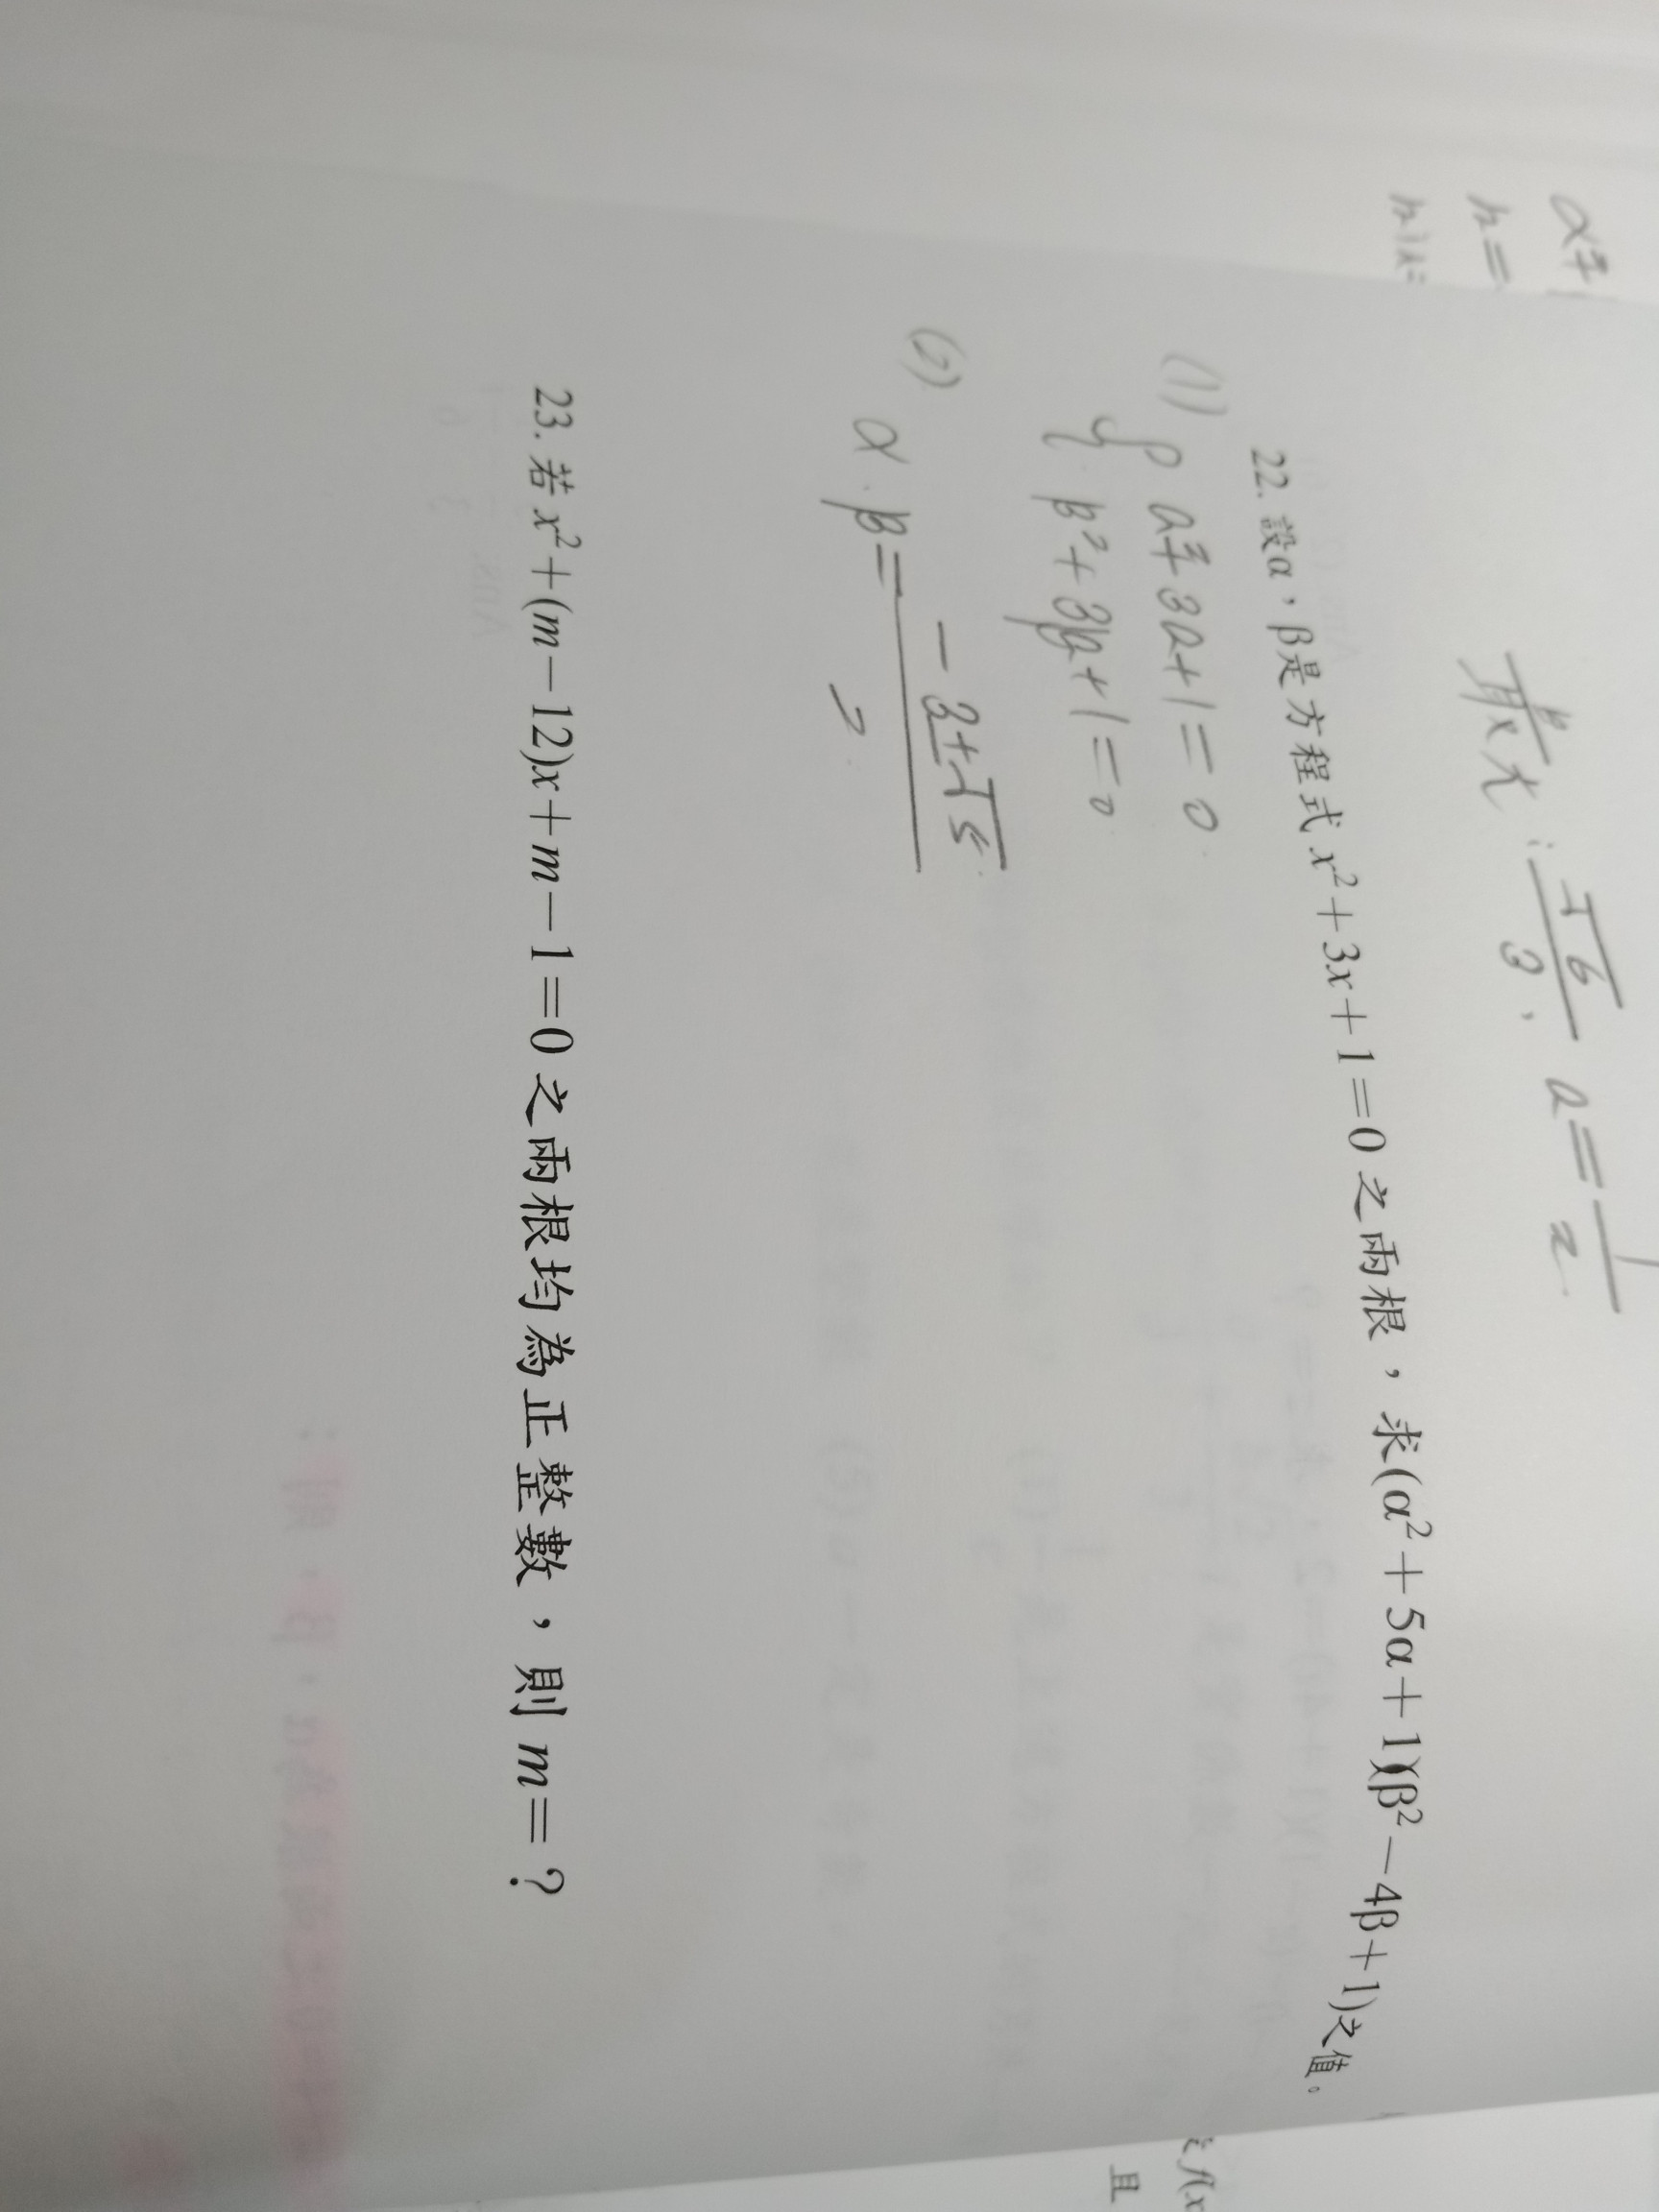 α+
n=
m+n=
最大: √6/3, a=1/2
22. 設α,β是方程式 x²+3x+1=0 之兩根,求(α²+5α+1)(β²-4β+1)之值。
(1) { a²+3a+1=0
β²+3β+1=0
(2)
α.β= -3±√5 / 2
23. 若 x²+(m-12)x+m-1=0 之兩根均為正整數,則 m=?
f(x
且